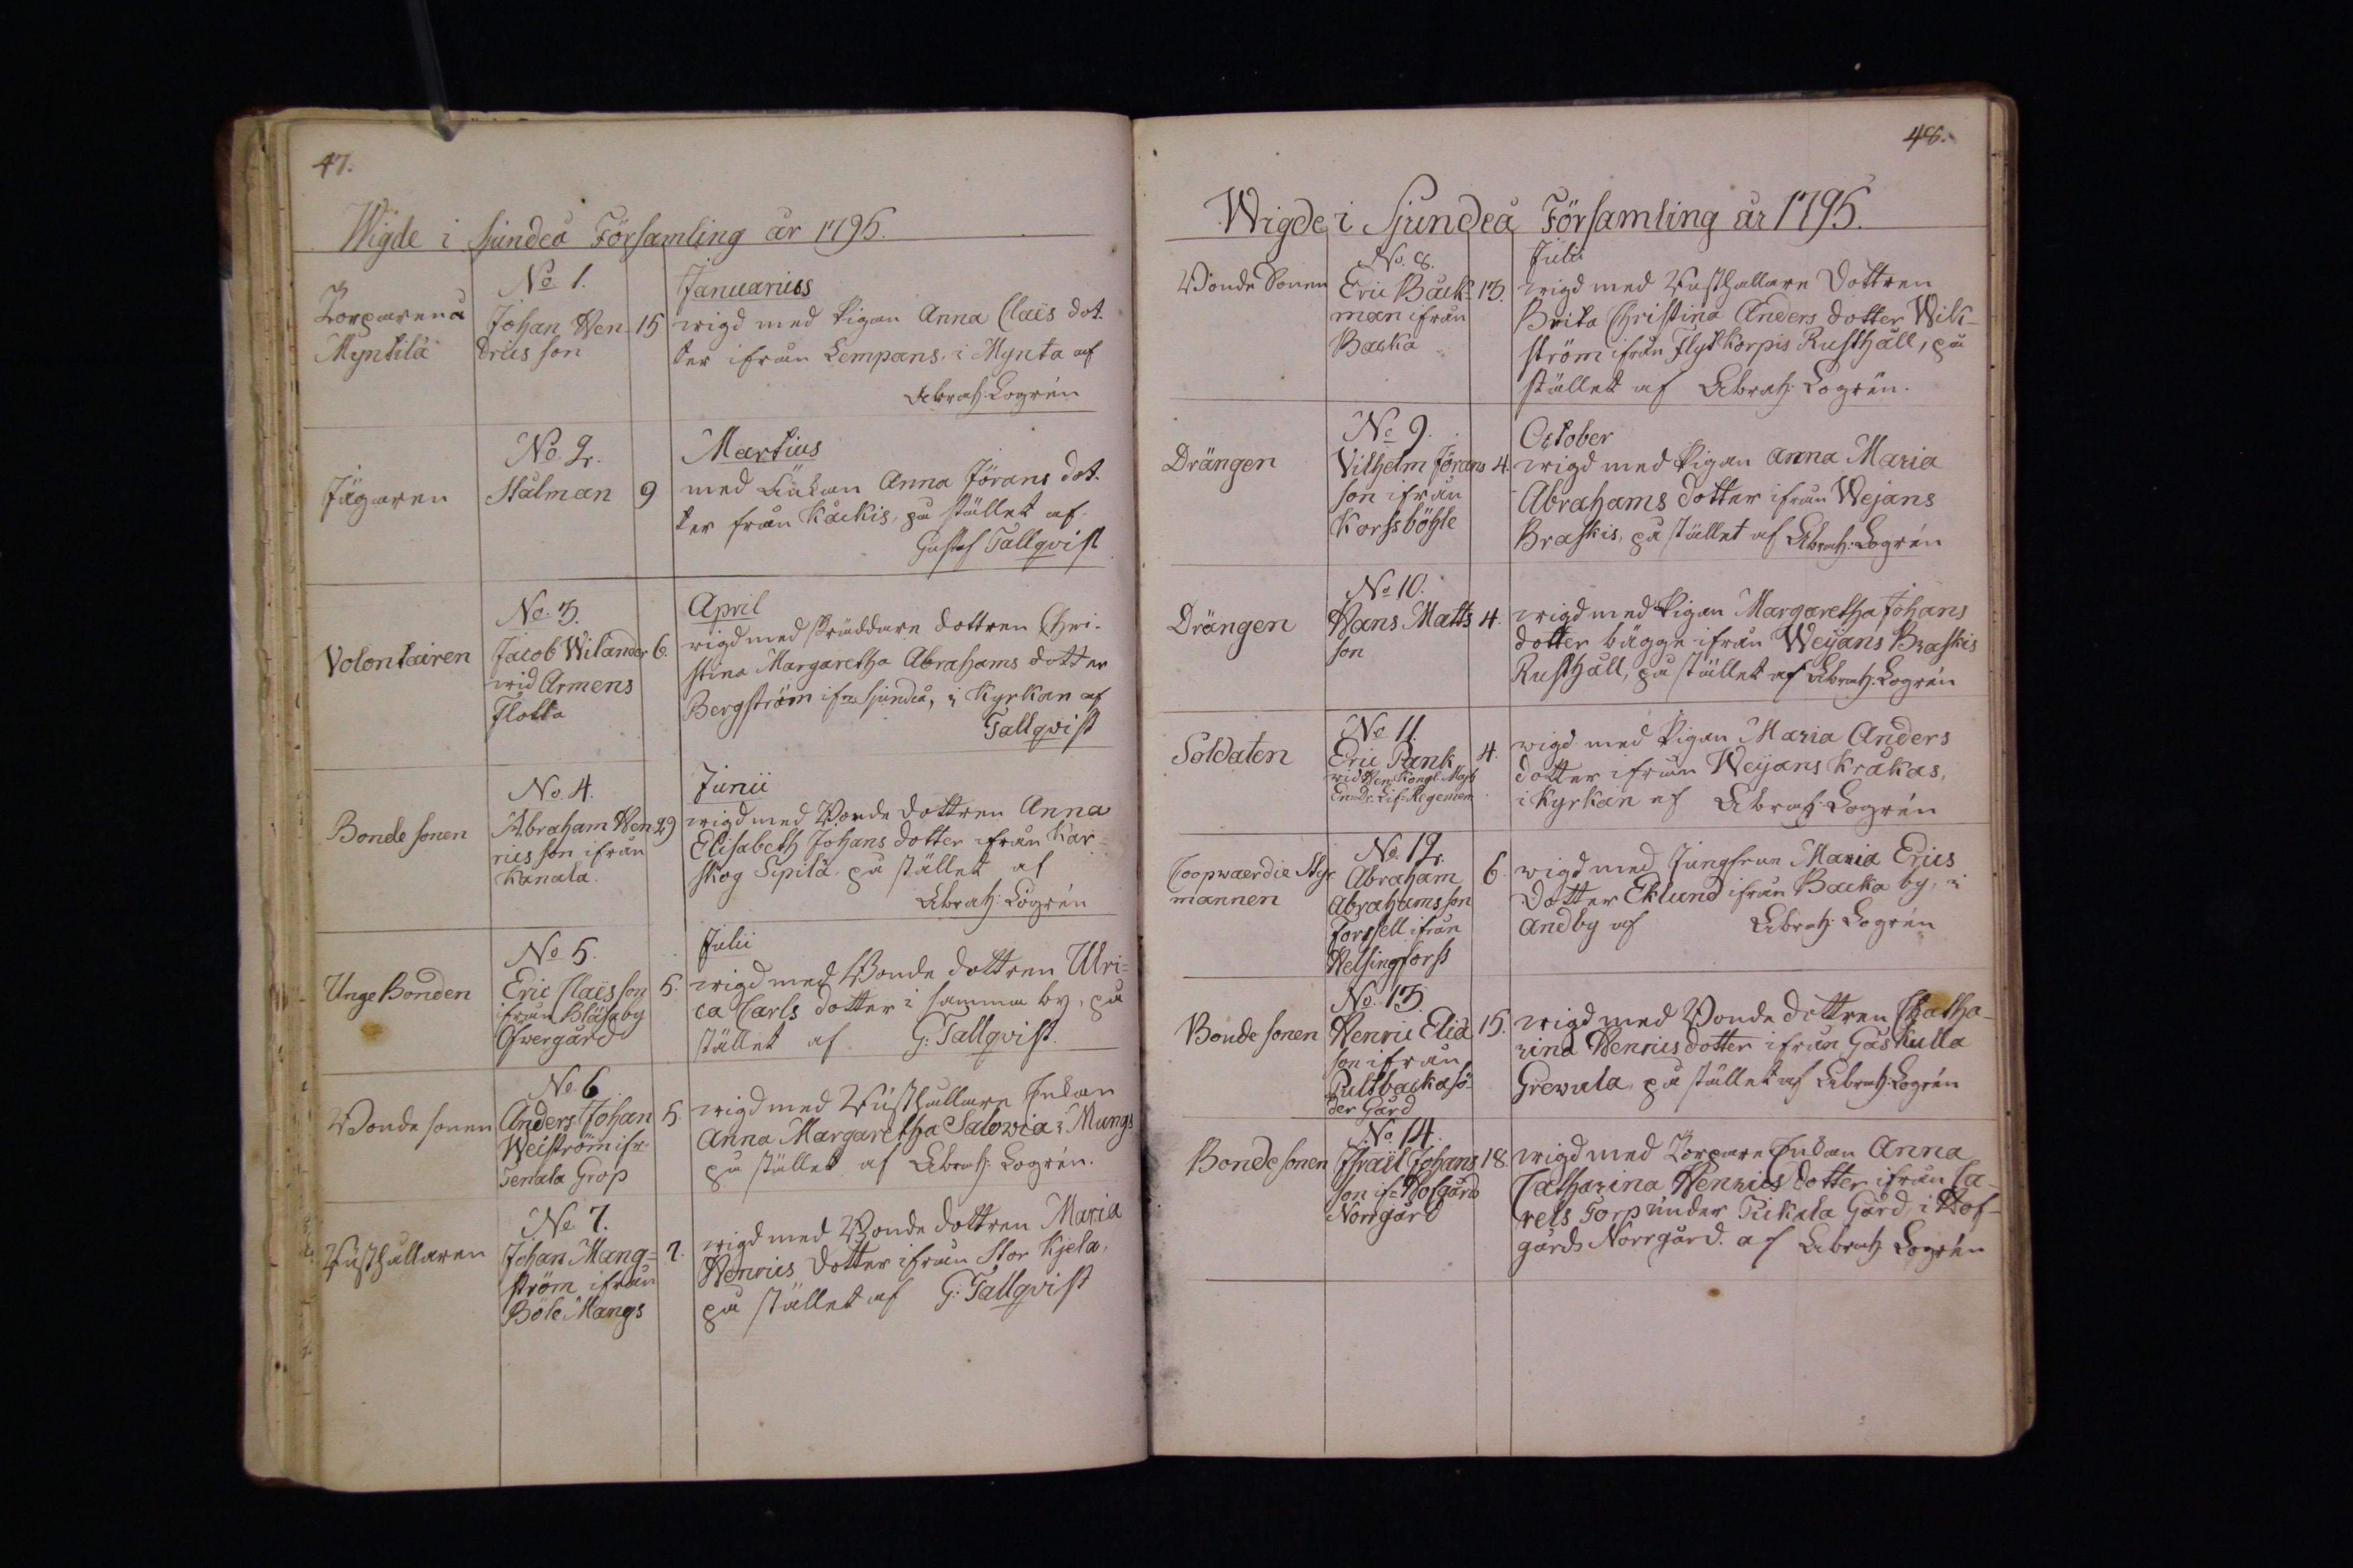 47.
Wigde i Sjundeå Församling år 1795.
No 1.
Januarius
Torparen å
Myntilä
Johan Hen-
drics son
15
wigd med Pigan Anna Claës dot-
ter ifrån Lempans i Mynta af
Abrah: Logrén
No. 2.
Martius
Jägaren
Stålman
9
med Änkan Anna Jörans dot-
ter från Kåckis, på stället af
Gustaf Tallqvist
No. 3.
April
Volontairen
Jacob Wilander
wid Armens
Flotta
6.
wigd med skräddare dottren Chri-
stina Margaretha Abrahams dotter
Bergström ifrn Sjundeå, i Kyrkan af
Tallqvist
No. 4.
Junii
Bonde sonen
Abraham Hen-
rics son ifrån
Kanala.
29
wigd med Bonde dottren Anna
Elisabeth Johans dotter ifrån Kar-
skog Sipilä på stället af
Abrah: Logrén
No 5.
Julii
Unge Bonden
Eric Claës son
ifrån Bläsaby
Öfwergård
5.
wigd med Bonde dottren Ulri-
ca Carls dotter i samma by, på
stället af G: Tallqvist.
No. 6
Bonde sonen
Anders Johan
Weiström ifr.
Tenala Grop
5.
wigd med Rusthållare Enkan
Anna Margaretha Salovia i Mungs
på stället af Abrah: Logrén.
No 7.
Rusthållaren
Johan Mang-
ström ifrån
Böle Mangs
7.
wigd med Bonde dottren Maria
Henrics dotter ifrån Stor Kjela,
på stället af G: Tallqvist
48.
Wigde i Sjundeå Församling år 1795.
No. 8.
Julii
Bonde Sonen
Eric Back-
man ifrån
Backa
13.
wigd med Rusthållare Dottren
Brita Christina Anders dotter Wik-
ström ifrån Flytkorpis Rusthåll, på
stället af Abrah: Logrén.
No 9.
October
Drängen
Vilhelm Jörans
son ifrån
Korssböhle
4.
wigd med Pigan Anna Maria
Abrahams dotter ifrån Wejans
Braskis, på stället af Abrah: Logrén
No 10.
Drängen
Hans Matts
son
4.
wigd med Pigan Margaretha Johans
dotter bägge ifrån Weijans Braskis
Rusthåll, på stället af Abrah: Logrén
No 11.
Soldaten
Eric Pank
wid Hans Kongl. Majts
En. Dr. Lif-Regemen
4.
wigd med Pigan Maria Anders
dotter ifrån Weijans Kråkas,
i Kyrkan af Abrah: Logrén
No. 12.
Coopwaerdie Styr
mannen
Abraham
Abrahamsson
Forssell ifrån
Helsingforss
6.
wigd med Jungfrun Maria Erics
Dotter Eklund ifrån Backa by, i
Andby af Abrah: Logrén
No. 13.
Bonde sonen
Henric Elia
son ifrån
Pultbacka sö-
der Gård
15.
wigd med Bonde dottren Catha-
rina Henricsdotter ifrån Gåskulla
Grewula, på stället af Abrah: Logrén
No. 14.
Bonde sonen
Israël Johans
son ifn Hofgård
Norrgård
18.
wigd med Torpare Enkan Anna
Catharina Henrics dotter ifrån Ca-
rels Torp under Tikala Gård, i Hof-
gårds Norrgård. af Abrah Logrén